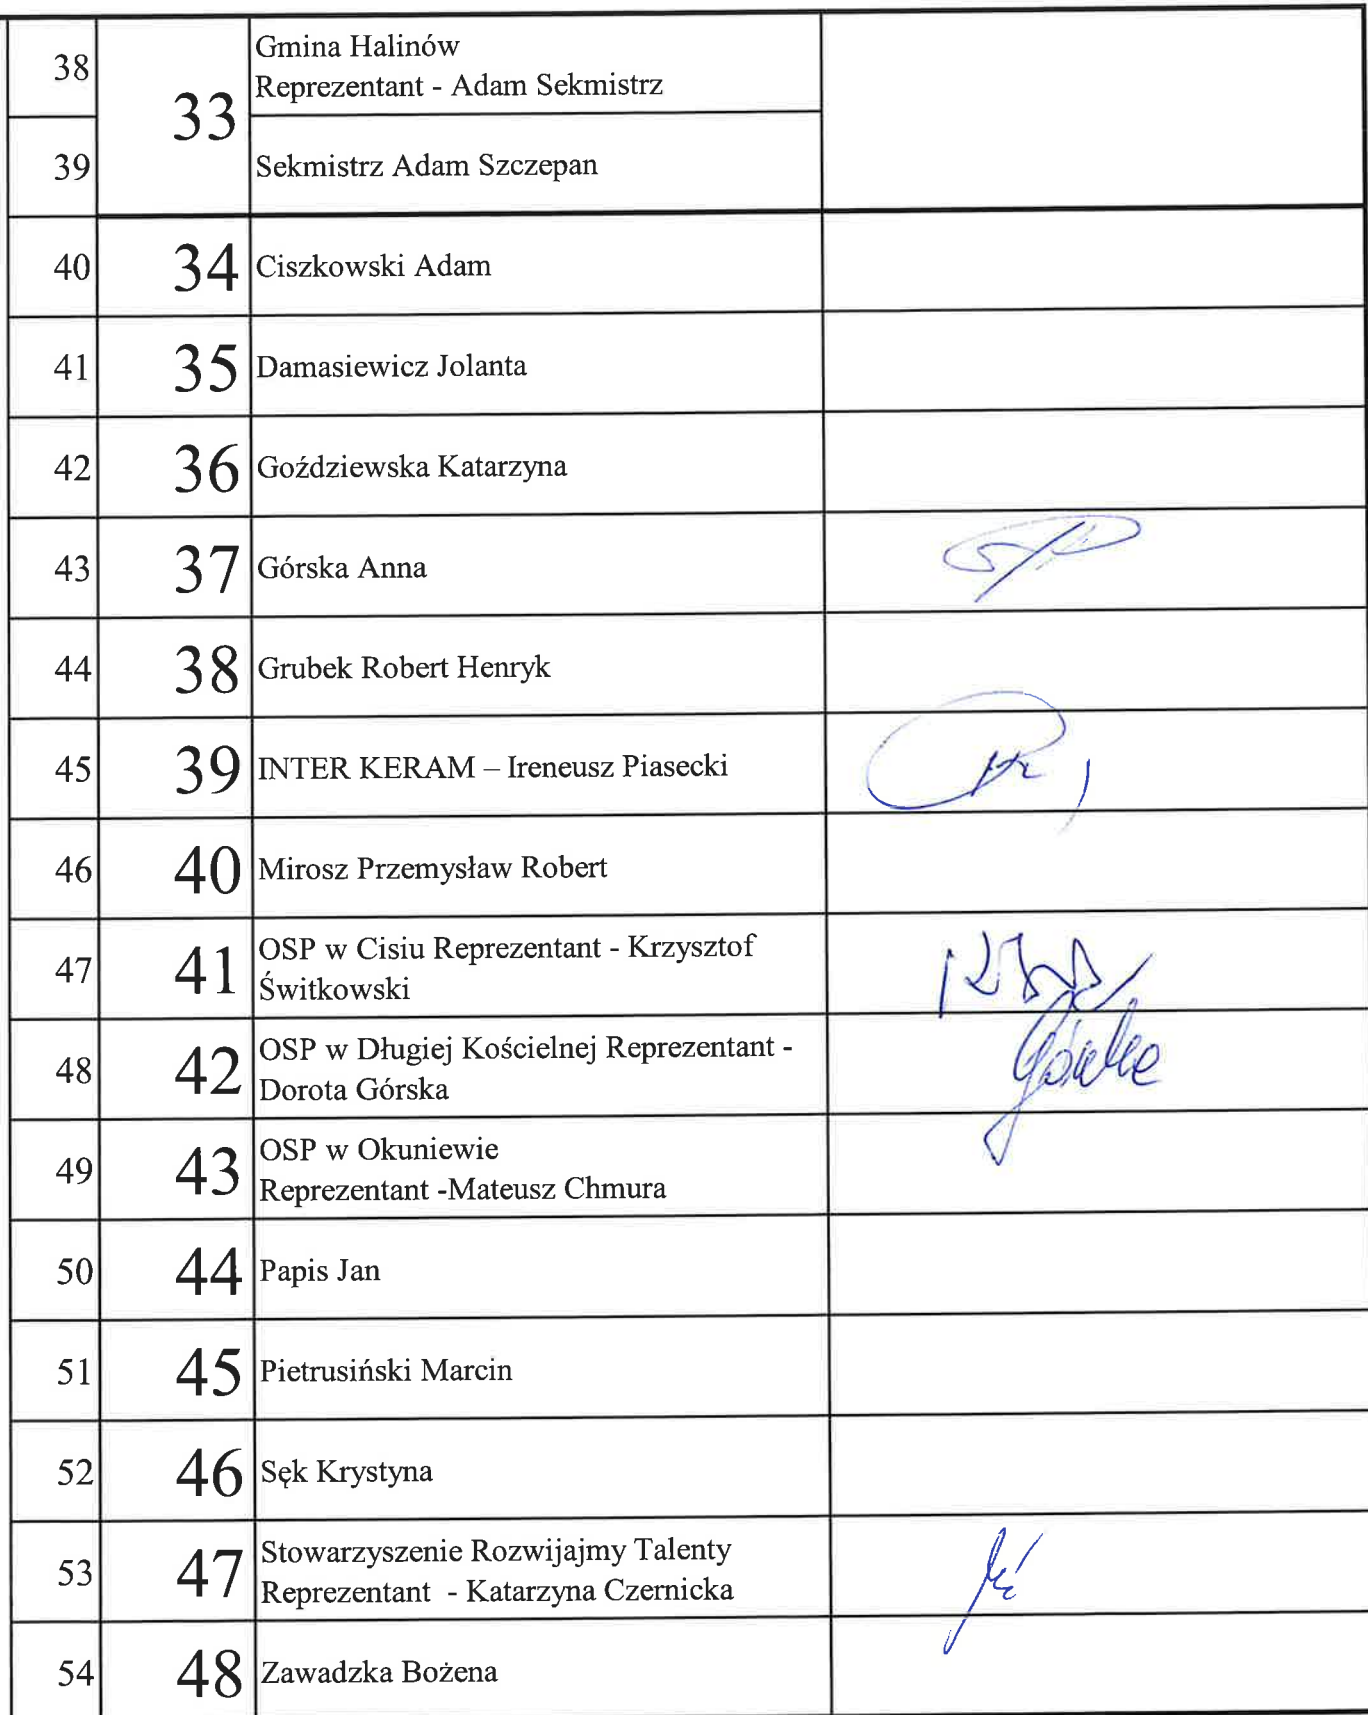 38
33
Gmina Halinów
Reprezentant - Adam Sekmistrz
39
Sekmistrz Adam Szczepan
40 34 Ciszkowski Adam
41 35 Damasiewicz Jolanta
42 36 Goździewska Katarzyna
43 37 Górska Anna
44 38 Grubek Robert Henryk
45 39 INTER KERAM – Ireneusz Piasecki
46 40 Mirosz Przemysław Robert
47 41 OSP w Cisiu Reprezentant - Krzysztof
Świtkowski
48 42 OSP w Długiej Kościelnej Reprezentant -
Dorota Górska
49 43 OSP w Okuniewie
Reprezentant -Mateusz Chmura
50 44 Papis Jan
51 45 Pietrusiński Marcin
52 46 Sęk Krystyna
53 47 Stowarzyszenie Rozwijajmy Talenty
Reprezentant - Katarzyna Czernicka
54 48 Zawadzka Bożena